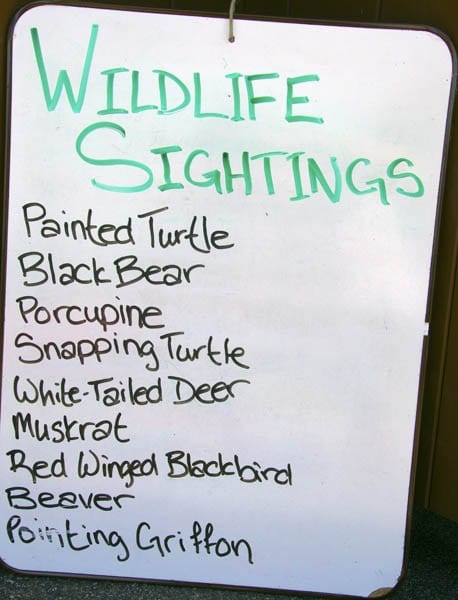 WILDLIFE
SIGHTINGS
Painted Turtle
Black Bear
Porcupine
Snapping Turtle
White-Tailed Deer
Muskrat
Red Winged Blackbird
Beaver
Pointing Griffon